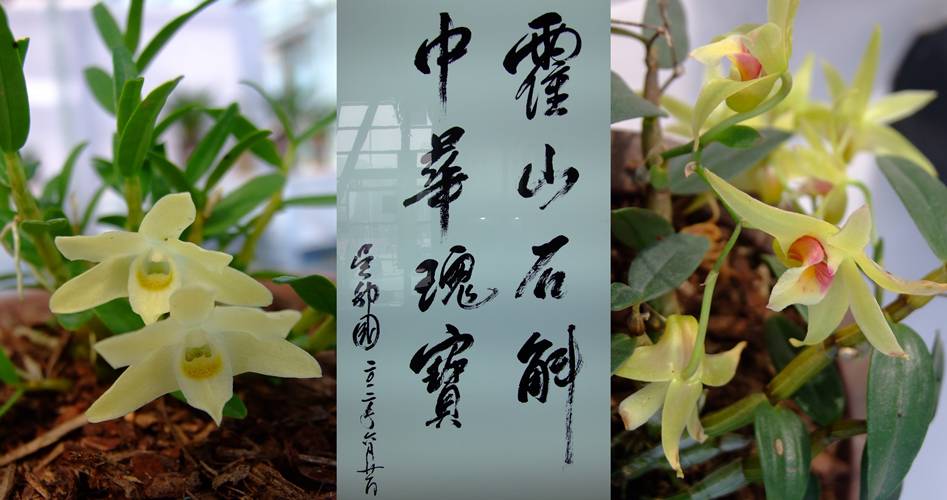 霍山石斛
中華瑰寶
吴邦國 二〇一二年六月廿日